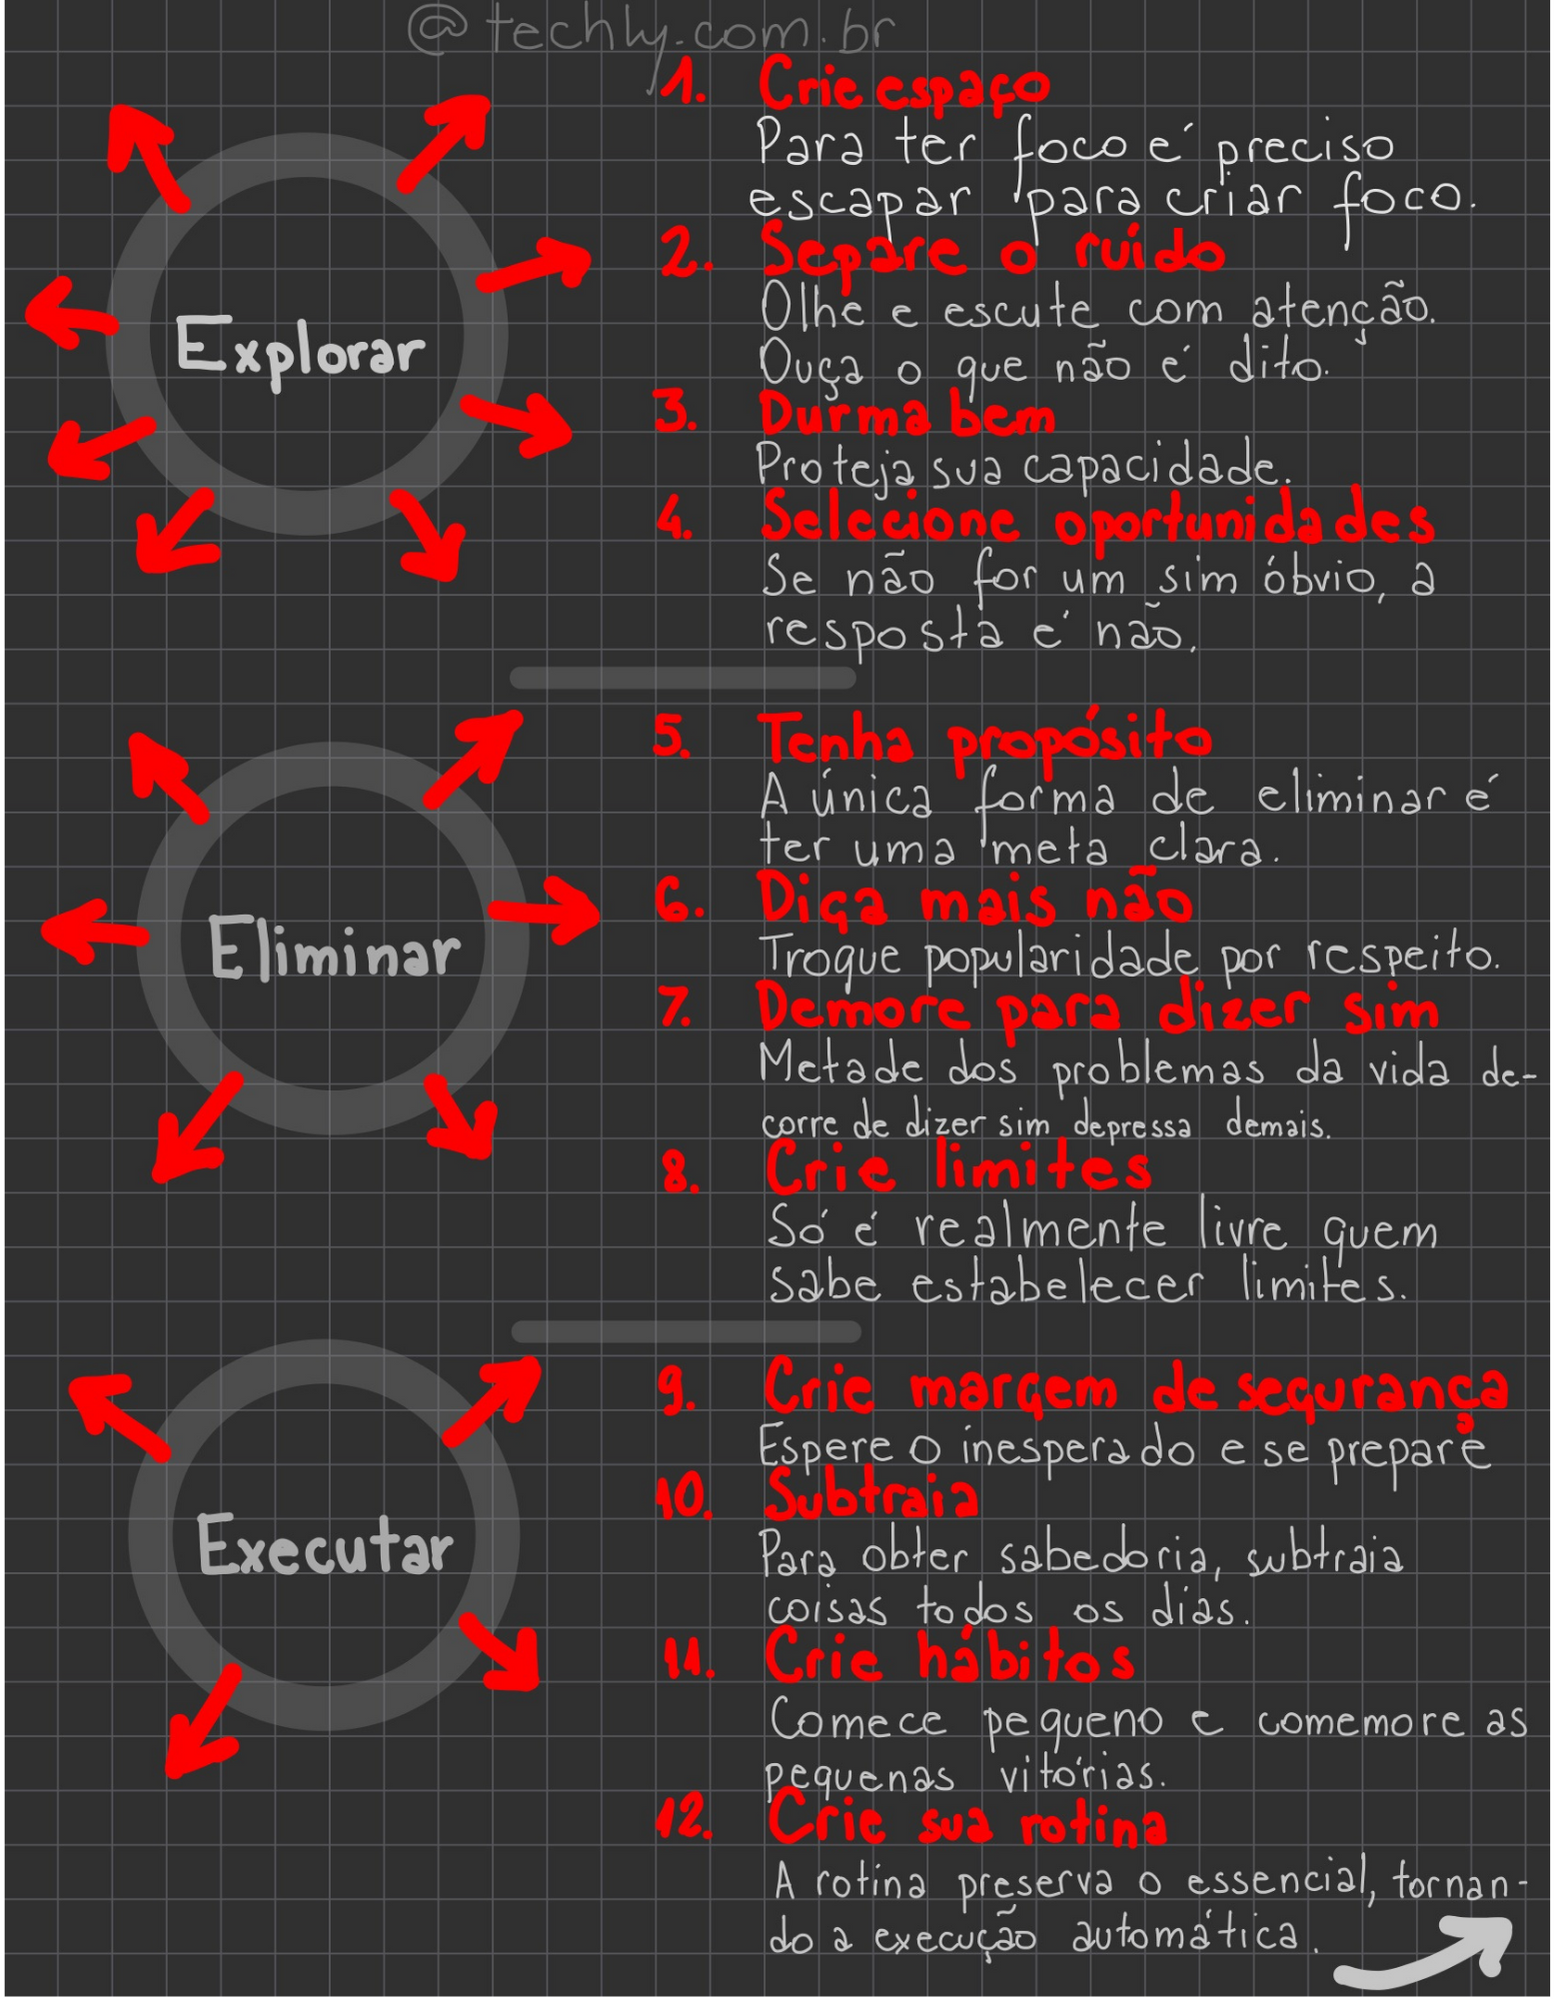 @techly.com.br
1. Crie espaço
Para ter foco é preciso
escapar para criar foco.
2. Separe o ruído
Olhe e escute com atenção.
Ouça o que não é dito.
3. Durma bem
Proteja sua capacidade.
4. Selecione oportunidades
Se não for um sim óbvio, a
resposta é não.
Explorar
5. Tenha propósito
A única forma de eliminar é
ter uma meta clara.
6. Diga mais não
Troque popularidade por respeito.
7. Demore para dizer sim
Metade dos problemas da vida de-
corre de dizer sim depressa demais.
8. Crie limites
Só é realmente livre quem
sabe estabelecer limites.
Eliminar
9. Crie margem de segurança
Espere o inesperado e se prepare
10. Subtraia
Para obter sabedoria, subtraia
coisas todos os dias.
11. Crie hábitos
Comece pequeno e comemore as
pequenas vitórias.
12. Crie sua rotina
A rotina preserva o essencial, tornan-
do a execução automática.
Executar